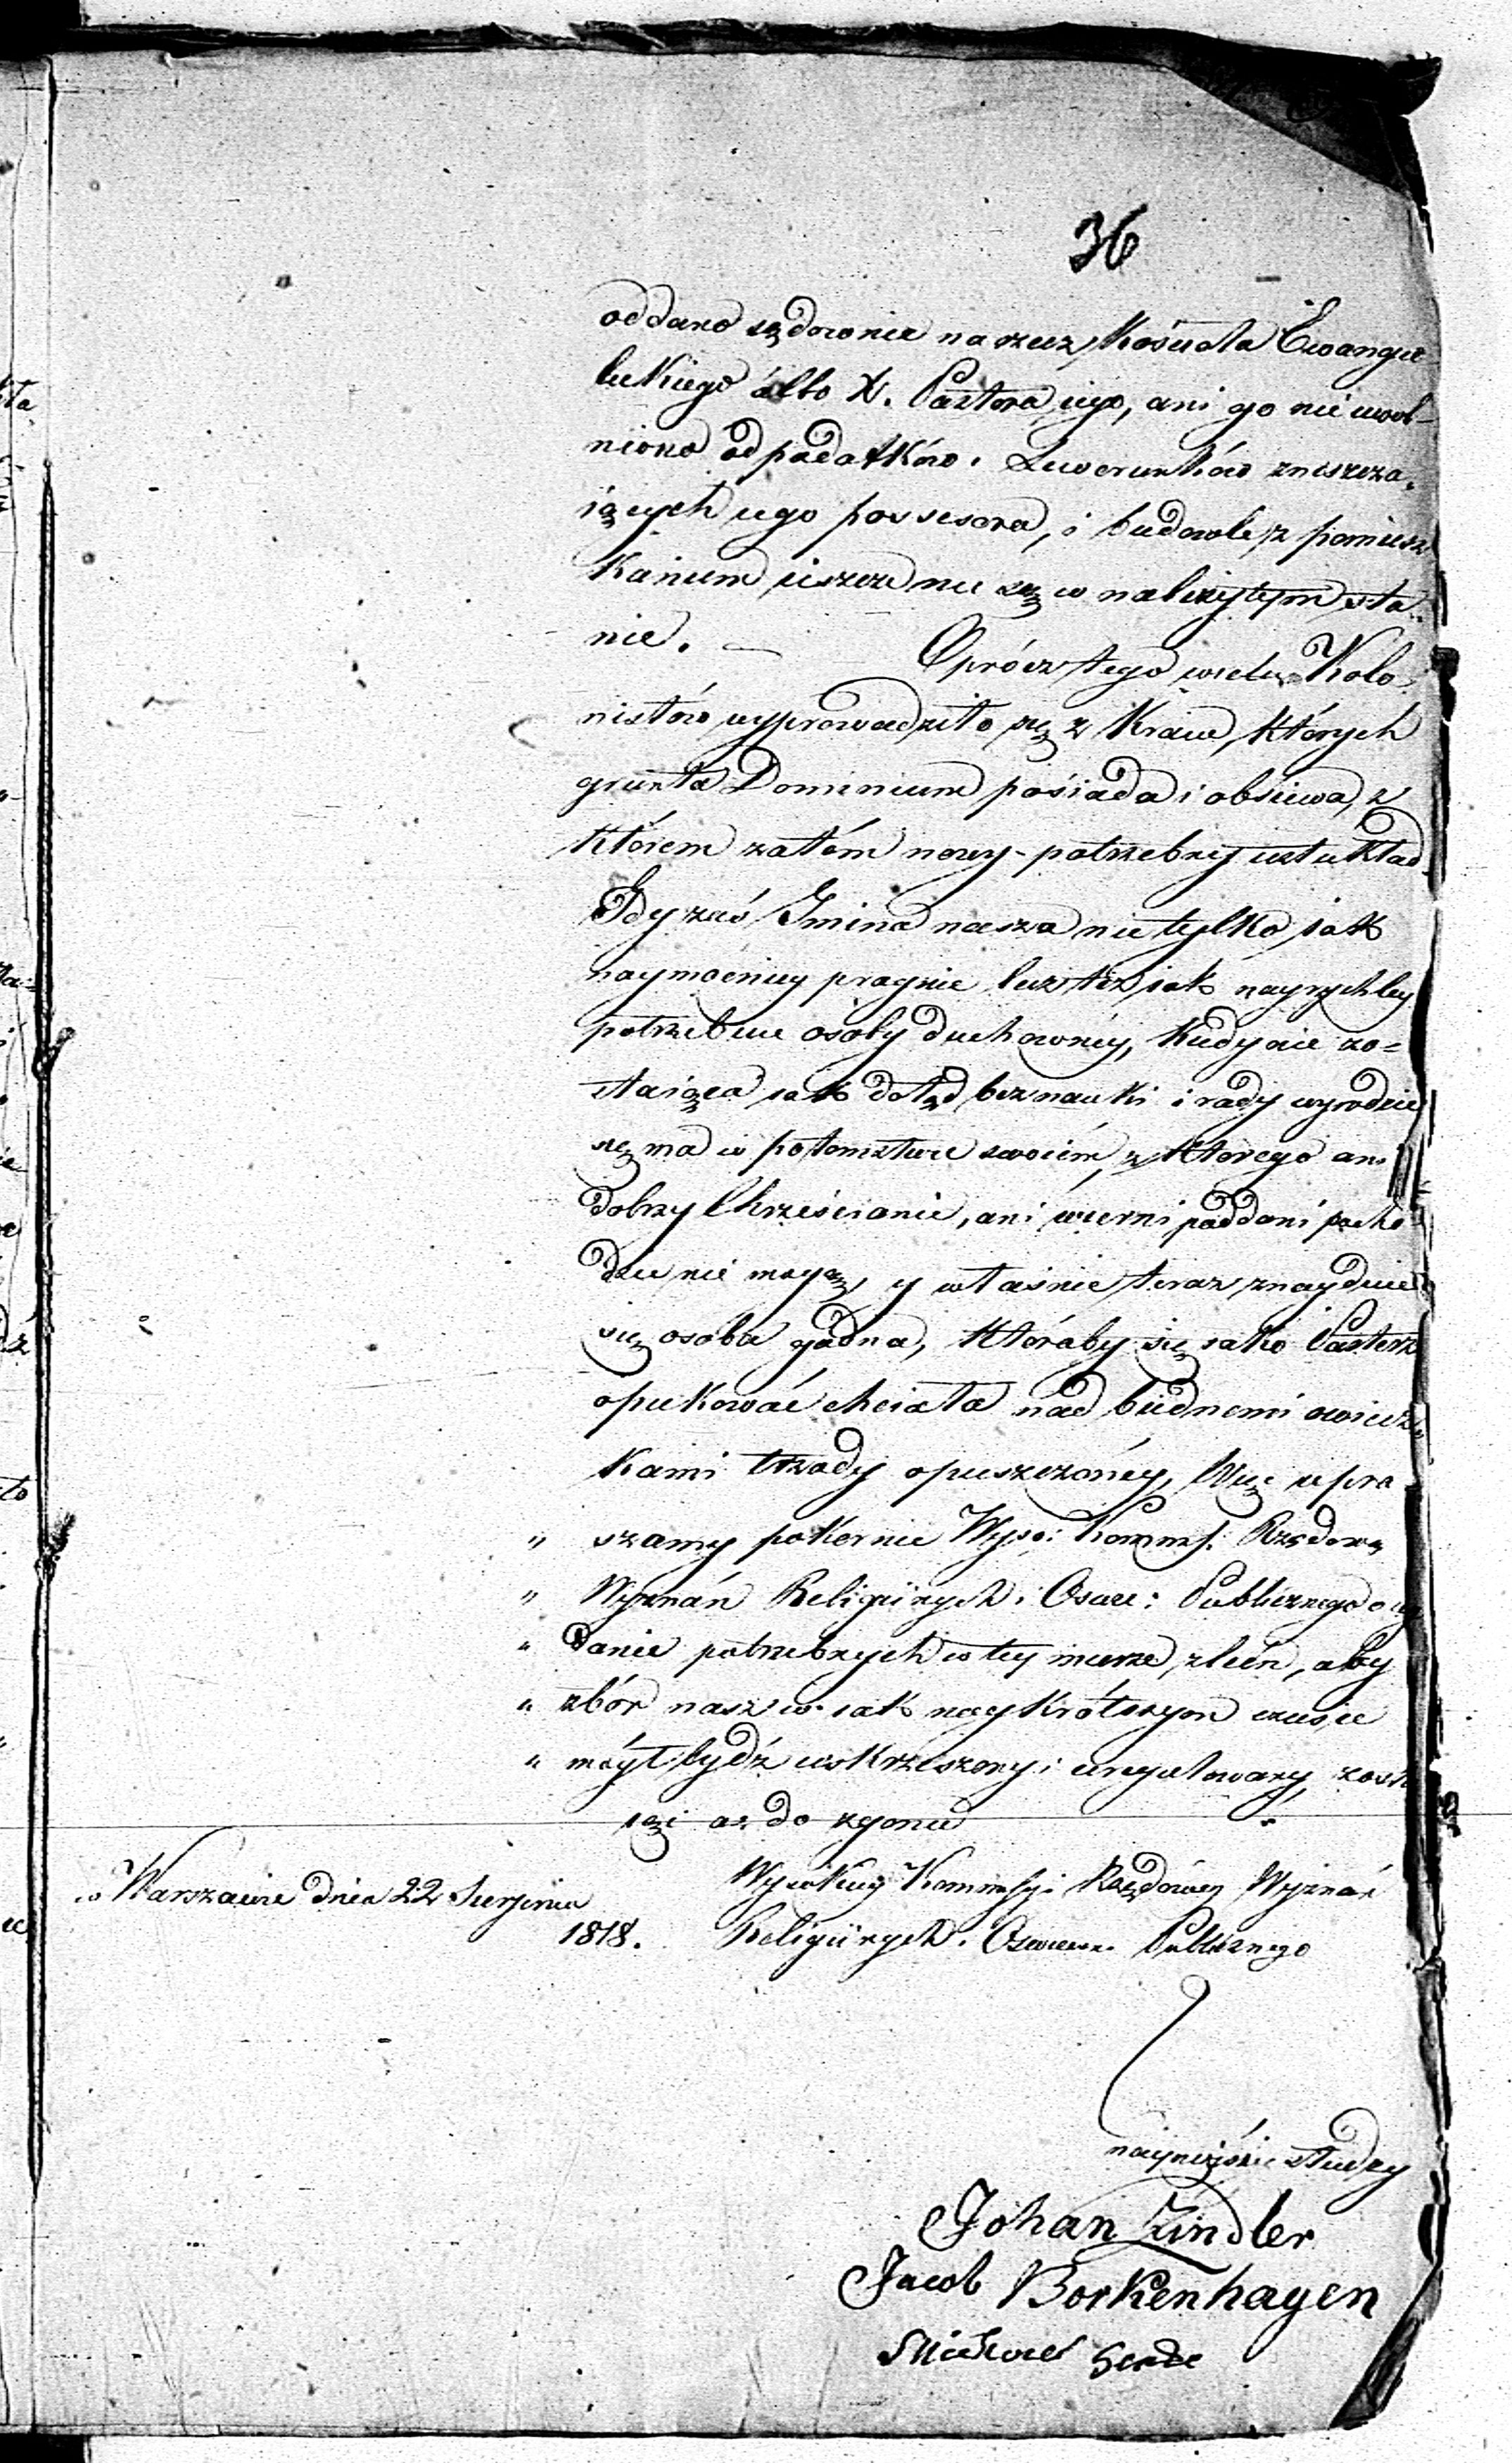 36
oddano sądownie na rzecz Kościoła Ewangie
lickiego albo X. Pastora iego, ani go nie uwol-
niono od podatków. Liwerunków zniszcza-
iących iego possesora, i budowle z pomiesz
kaniem ieszcze nie są w należytym sta-
nie. — Oprócz tego wielu Kolo-
nistów wyprowadziło się z Kraiu, których
grunta Dominium posiada i obsiewa, z
którem zatém nowy potrzebny iest układ
Gdy zaś Gmina nasza nie tylko iak
naymocniey pragnie lecz też iak nayrychley
potrzebuie osoby duchowney, kiedy nie zo=
staiąca iak dotąd bez nauki i rady wyrodzić
się ma w potomstwie swoiém, z którego ani
dobrzy Chrześcianie, ani wierni poddani pocho
dzić nie mogą, y właśnie teraz znayduie
się osoba godna, któraby się iako Pasterz
opiekować chciała nad biednemi owiecz-
kami trzody opuszczoney, Więc upra
" szamy pokornie Wyso: Kommiss: Rządową
" Wyznań Religiinych i Oświe: Publicznego o wy
" danie potrzebnych w tey mierze zleceń, aby
" zbór nasz w iak naykrótszym czasie
" mógł bydź wskrzeszony i uregulowany zosta
iąc aż do zgonu
w Warszawie dnia 22 Sierpnia
1818.
Wysokiey Kommissyi Rządowey Wyznań
Religiinych i Oświece: Publicznego
nayniższi słudzy
Johan Zindler
Jacob Borkenhagen